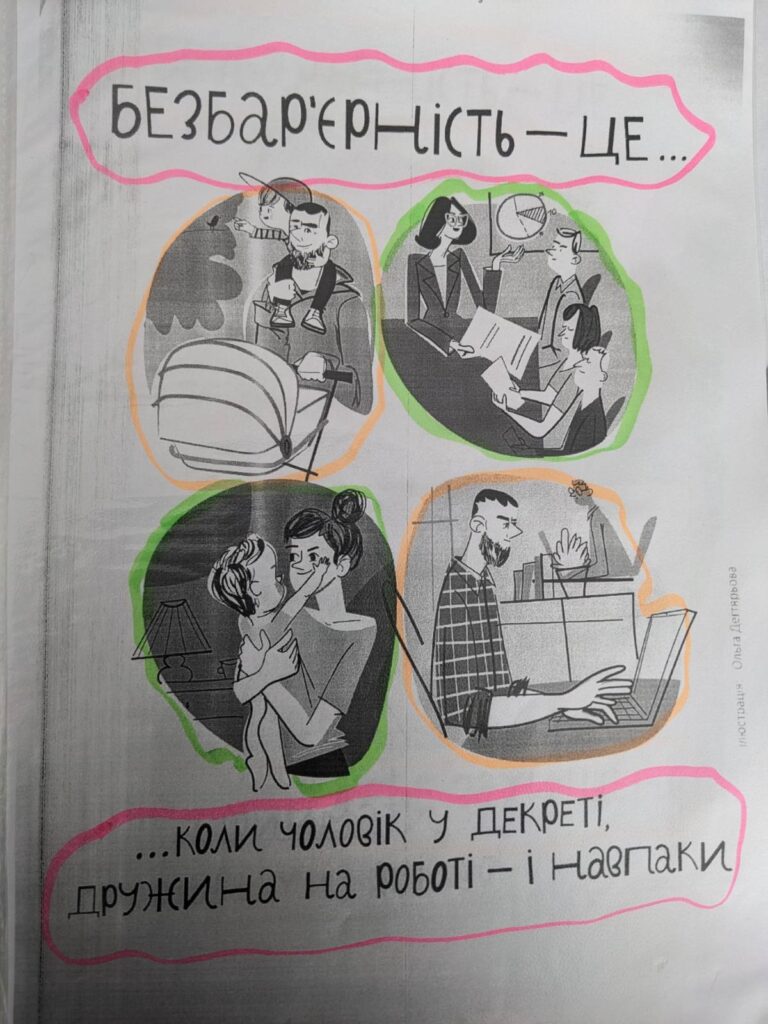 БЕЗБАР'ЄРНІСТЬ – ЦЕ...
Ілюстрація Ольга Дегтярьова
...КОЛИ ЧОЛОВІК У ДЕКРЕТІ,
ДРУЖИНА НА РОБОТІ – І НАВПАКИ